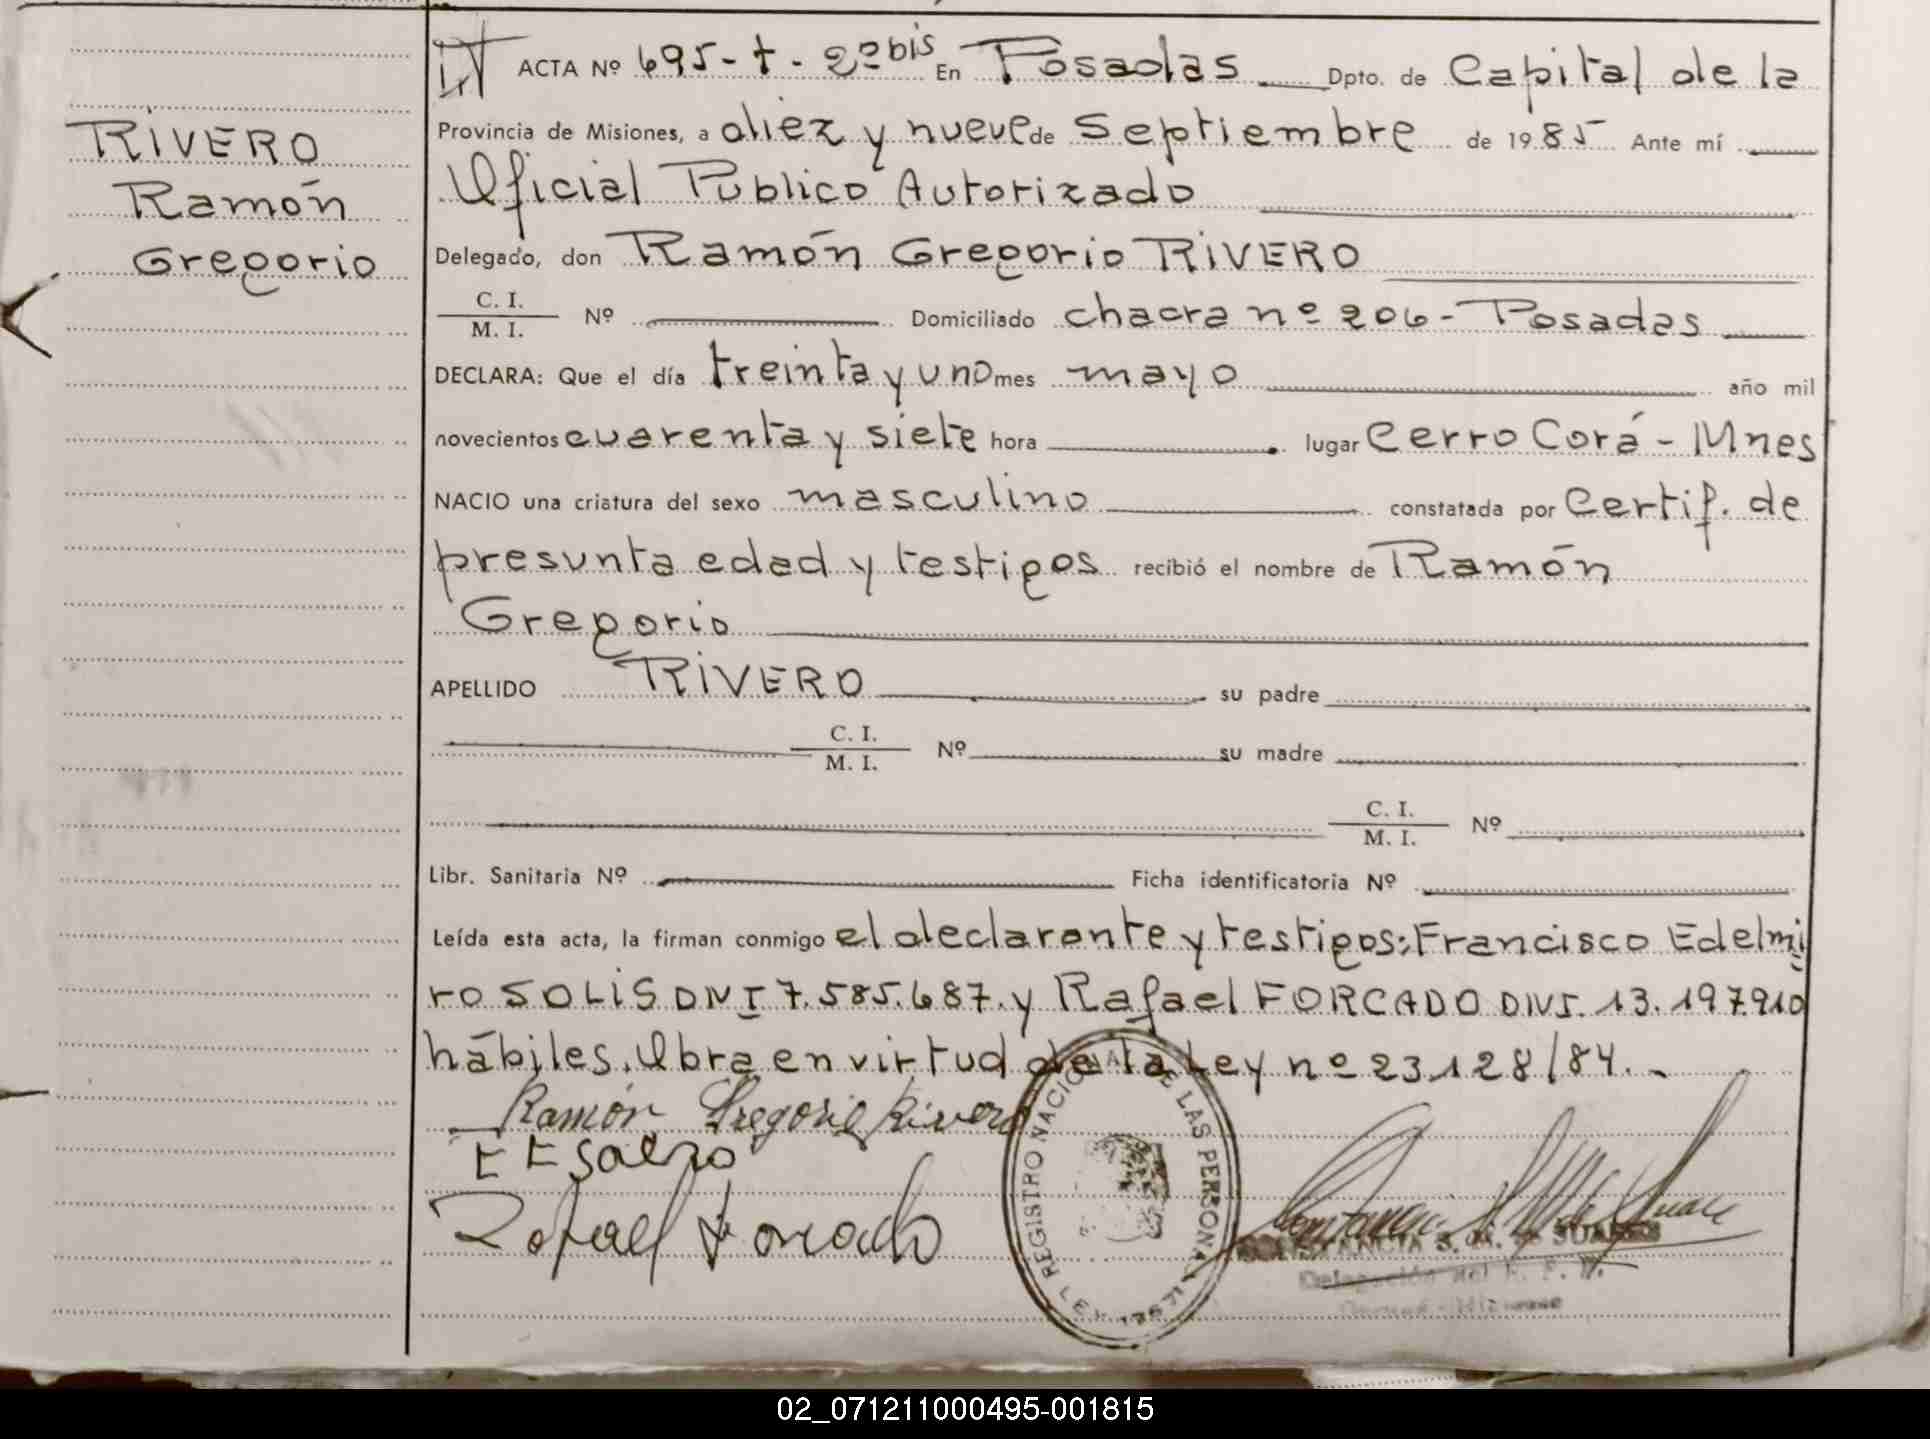 RIVERO
Ramón
Gregorio
ACTA Nº 695-t-2º bis En Posadas Dpto. de Capital de la
Provincia de Misiones, a diez y nueve de Septiembre de 1985 Ante mí
Oficial Público Autorizado
Delegado, don Ramón Gregorio RIVERO
C. I.
M. I. Nº Domiciliado chacra nº 206 - Posadas
DECLARA: Que el día treinta y uno mes mayo año mil
novecientos cuarenta y siete hora lugar Cerro Corá - Mnes
NACIO una criatura del sexo masculino constatada por Certif. de
presunta edad y testigos recibió el nombre de Ramón
Gregorio
APELLIDO RIVERO su padre
C. I.
M. I. Nº su madre
C. I.
M. I. Nº
Libr. Sanitaria Nº Ficha identificatoria Nº
Leída esta acta, la firman conmigo el declarante y testigos: Francisco Edelmi
ro SOLIS DNI 7.585.687. y Rafael FORCADO DNI. 13.197.910
hábiles. Obra en virtud de la Ley nº 23128/84.-
Ramón Gregorio Rivero
Rafael Forcado
REGISTRO NACIONAL DE LAS PERSONAS
CONSTANCIA S. M. de SUAREZ
Delegación del R. P. P.
Posadas - Misiones
02_071211000495-001815